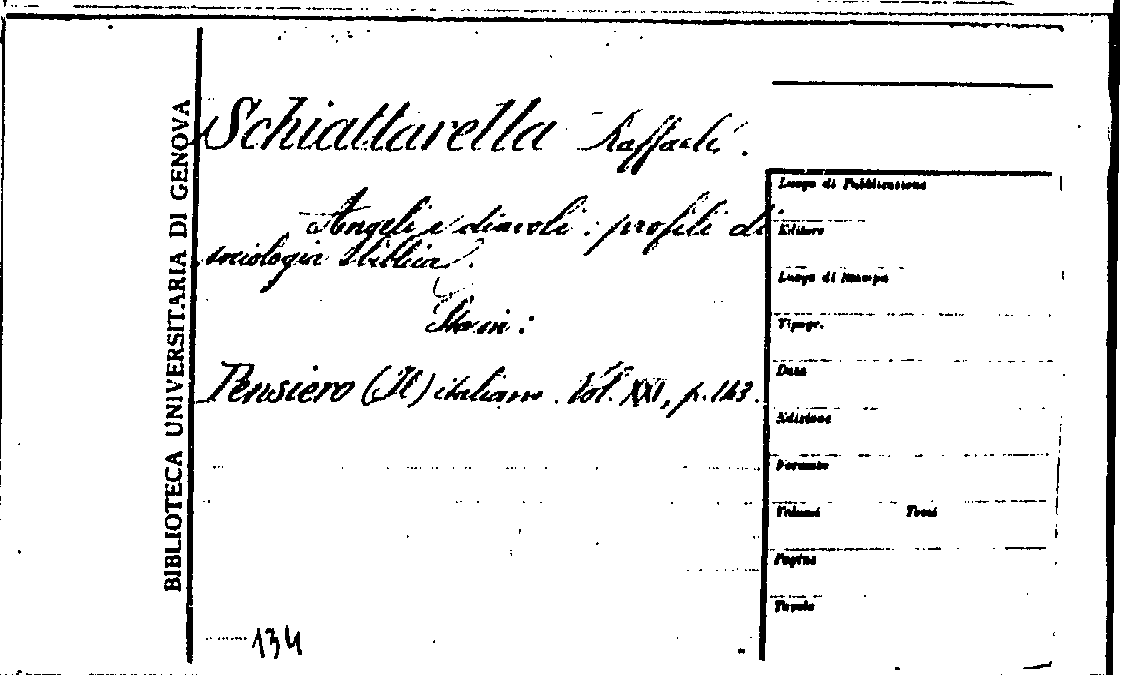 BIBLIOTECA UNIVERSITARIA DI GENOVA
Schiattarella Raffaele.
Angeli e diavoli: profili di
sociologia biblica.
Sta in:
Pensiero (Il) italiano. Vol. XXI, p. 143.
134
Luogo di Pubblicazione
Editore
Luogo di stampa
Tipogr.
Data
Edizione
Formato
Volumi Tomi
Pagine
Tavole